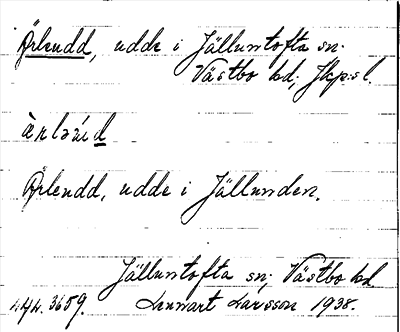 Örlendd, udde i Jälluntofta sn.
Västbo hd, Jkp:s l.
Örlendd, udde i Jällunden.
Jälluntofta sn; Västbo hd
3659. Lennart Larsson 1938.